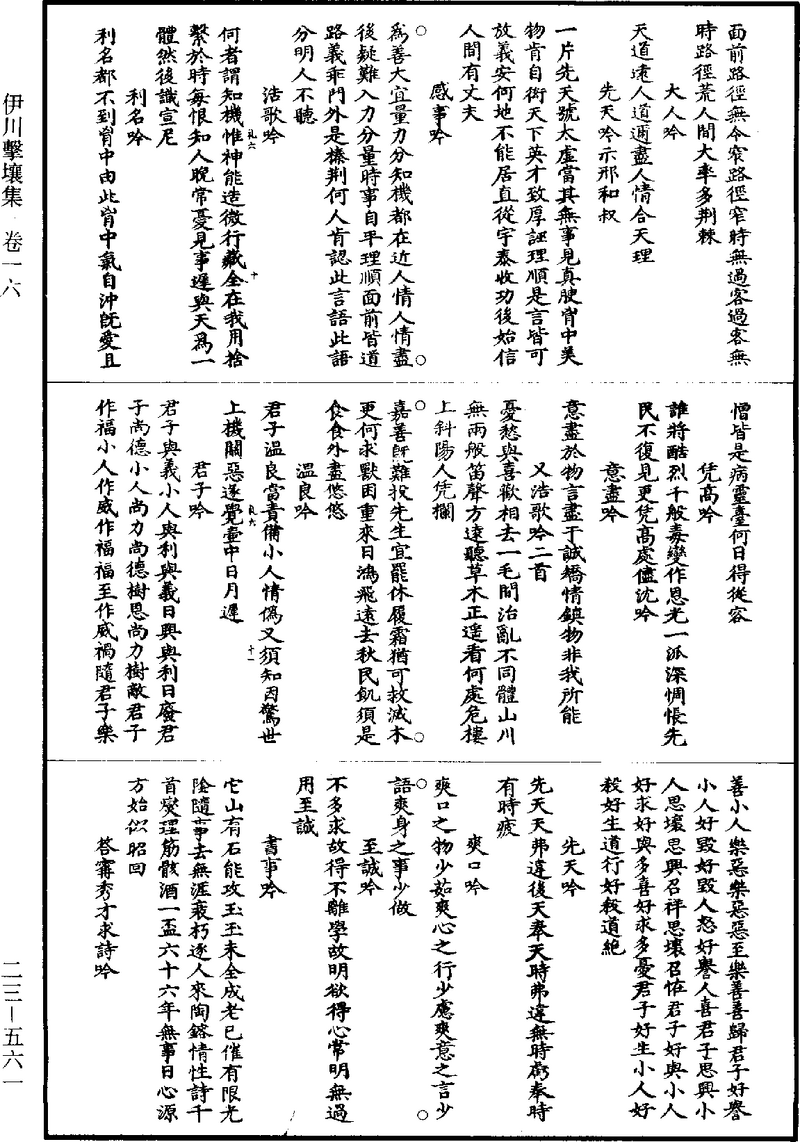 伊川擊壤集 卷一六
面前路徑無令窄路徑窄時無過客過客無
時路徑荒人間大率多荆棘
大人吟
天道遠人道邇盡人情合天理
先天吟示邢和叔
一片先天號太虛當其無事見真腴胷中美
物肯自衒天下英才致厚誣理順是言皆可
放義安何地不能居直從宇泰收功後始信
人間有丈夫
感事吟
爲善大宜量力分知機都在近人情人情盡
後疑難入力分量時事自平理順面前皆道
路義乖門外是榛荆何人肯認此言語此語
分明人不聽
浩歌吟
何者謂知機惟神能造微行藏全在我用捨
繫於時每恨知人晚常憂見事遲與天爲一
體然後識宣尼
利名吟
利名都不到胷中由此胷中氣自沖既愛且
憎皆是病靈臺何日得從容
凭高吟
誰將酷烈千般毒變作恩光一派深惆悵先
民不復見更凭高處儘沈吟
意盡吟
意盡於物言盡于誠矯情鎮物非我所能
又浩歌吟二首
憂愁與喜歡相去一毛間治亂不同體山川
無兩般笛聲方遠聽草木正遥看何處危樓
上斜陽人凭欄
嘉善既難投先生宜罷休履霜猶可救滅木
更何求獸困重來日鴻飛遠去秋民飢須是
食食外盡悠悠
温良吟
君子温良當責備小人情僞又須知因驚世
上機關惡遂覺壷中日月遲
君子吟
君子與義小人與利與義日興與利日廢君
子尚德小人尚力尚德樹恩尚力樹敵君子
作福小人作威作福福至作威禍隨君子樂
善小人樂惡樂惡惡至樂善善歸君子好譽
小人好毁好毁人怒好譽人喜君子思興小
人思壞思興召祥思壞召怪君子好與小人
好求好與多喜好求多憂君子好生小人好
殺好生道行好殺道絶
先天吟
先天天弗違後天奉天時弗違無時虧奉時
有時疲
爽口吟
爽口之物少茹爽心之行少慮爽意之言少
語爽身之事少做
至誠吟
不多求故得不雜學故明欲得心常明無過
用至誠
書事吟
它山有石能攻玉玉未全成老已催有限光
陰隨事去無涯衰朽逐人來陶鎔情性詩千
首燮理筋骸酒一盃六十六年無事日心源
方始似昭回
荅甯秀才求詩吟
二三—五六一